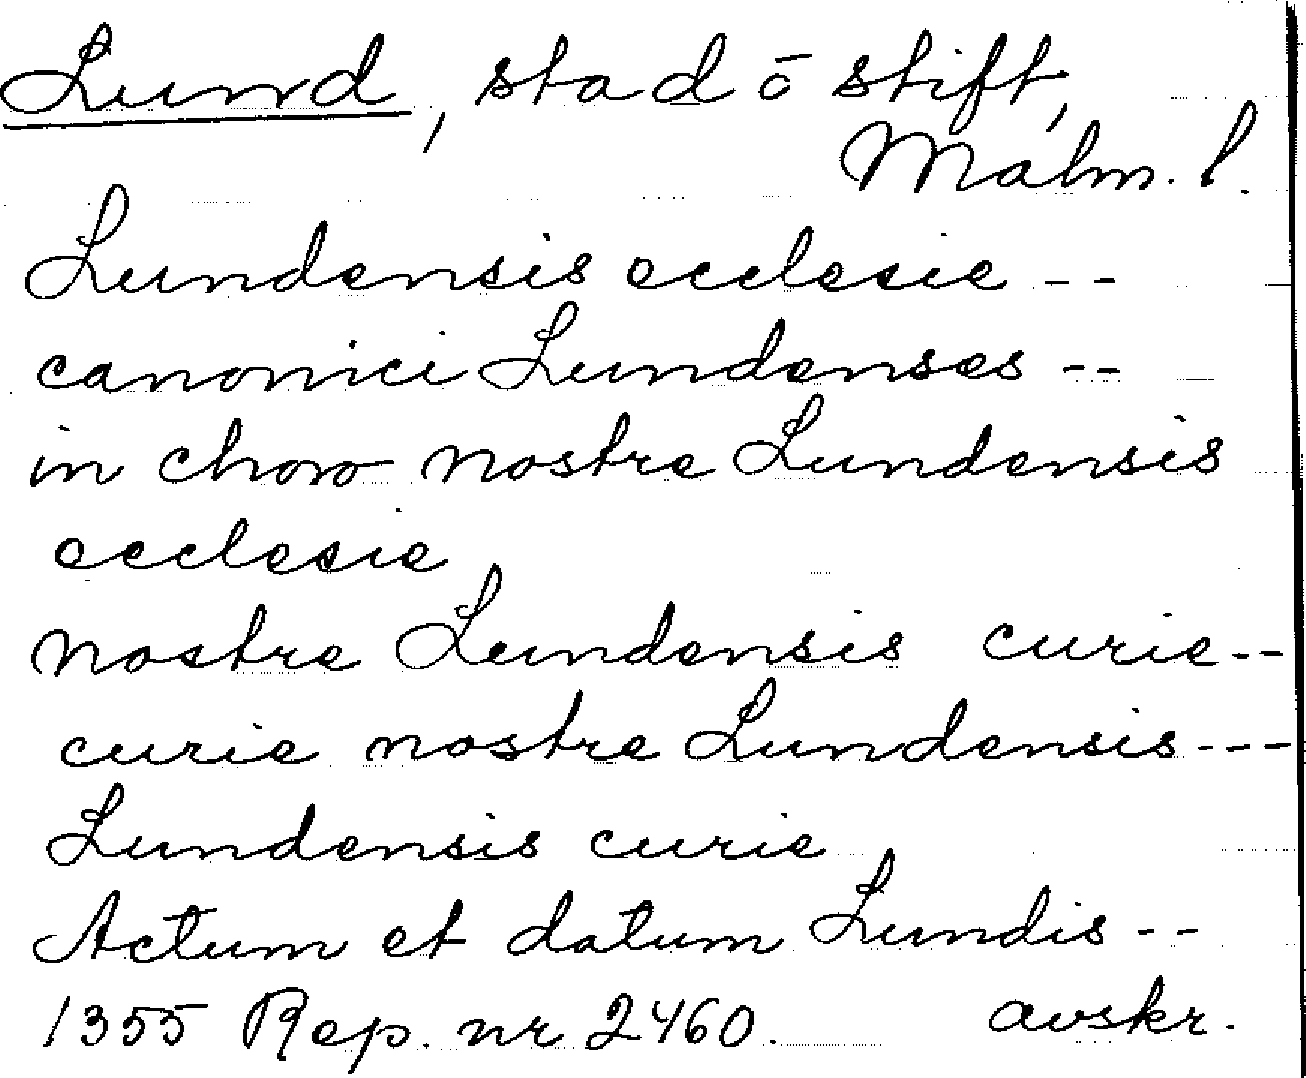 Lund, stad ō stift,
Malm. l.
Lundensis ecclesie --
canonici Lundenses --
in choro nostre Lundensis
ecclesie
nostre Lundensis curie--
curie nostre Lundensis---
Lundensis curie
Actum et datum Lundis --
1355 Rep. nr 2460. avskr.